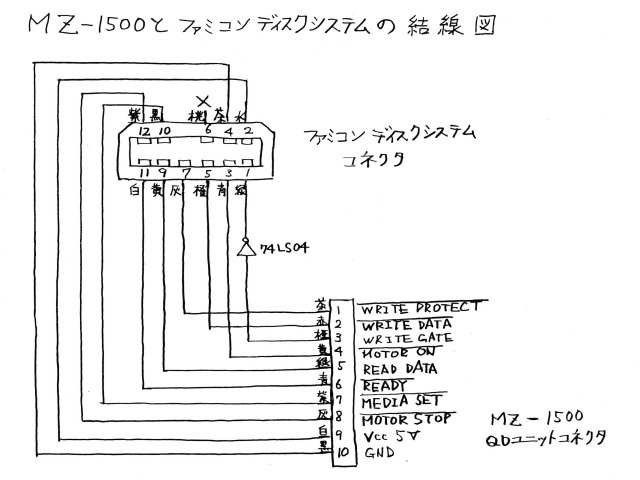 MZ-1500とファミコンディスクシステムの結線図
紫 黒 × 桃 茶 水
12 10 6 4 2
ファミコンディスクシステム
コネクタ
11 9 7 5 3 1
白 黄 灰 橙 青 緑
74LS04
茶 1 WRITE PROTECT
赤 2 WRITE DATA
橙 3 WRITE GATE
黄 4 MOTOR ON
緑 5 READ DATA
青 6 READY
紫 7 MEDIA SET
灰 8 MOTOR STOP
白 9 Vcc 5V
黒 10 GND
MZ-1500
QDユニットコネクタ